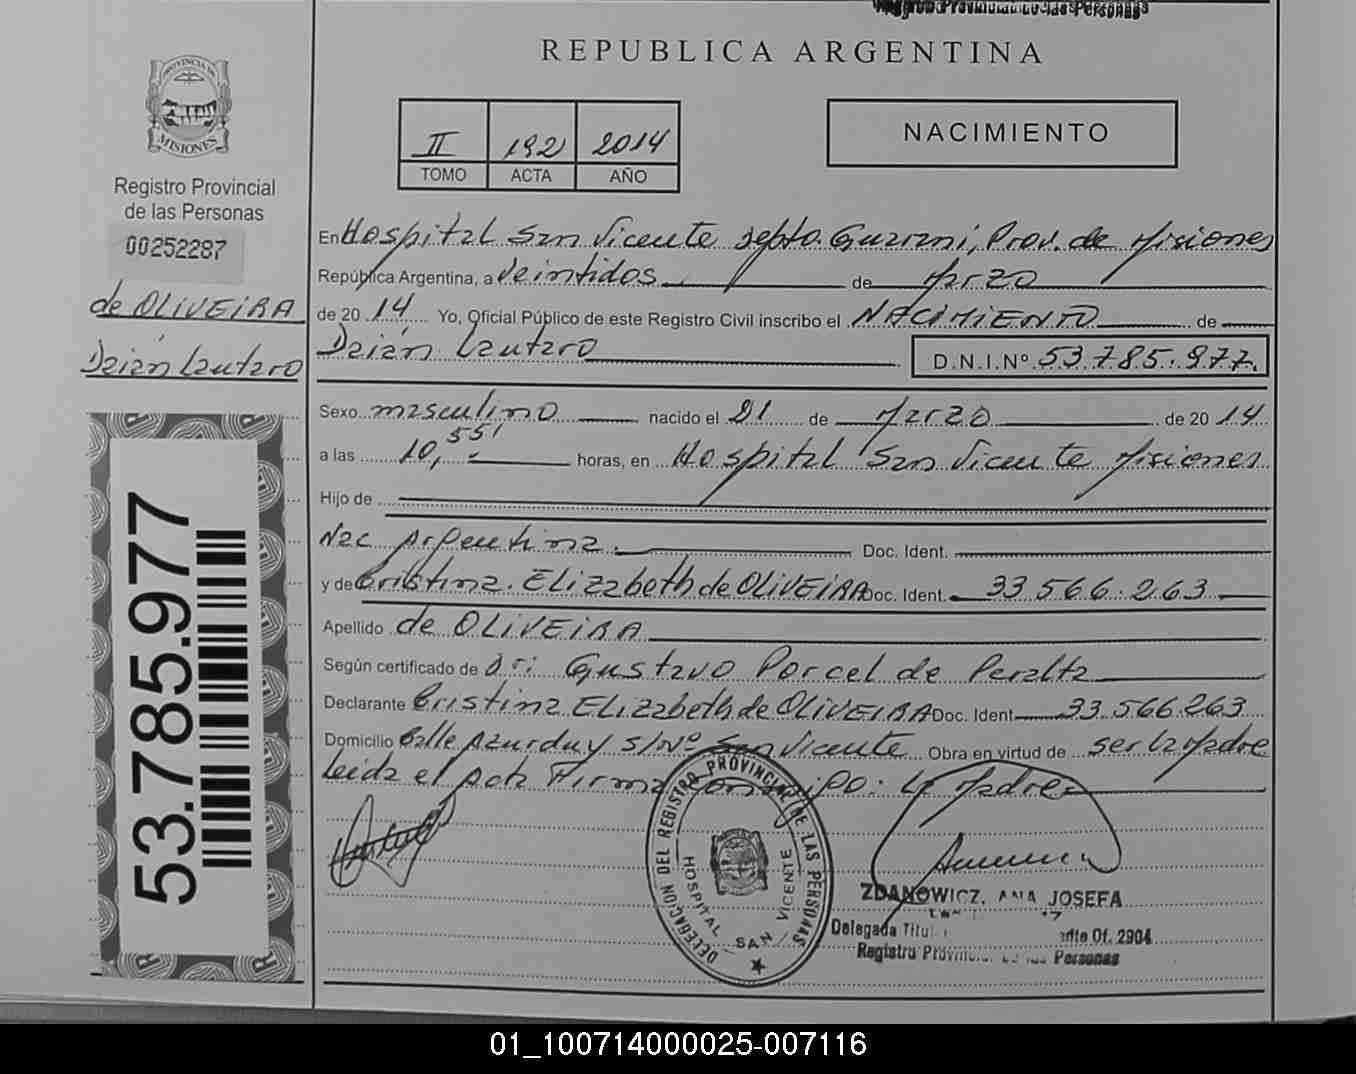 REPUBLICA ARGENTINA
PROVINCIA DE
MISIONES
Registro Provincial
de las Personas
00252287
de OLIVEIRA
Deián Lautaro
53.785.977
II 192 2014
TOMO ACTA AÑO
NACIMIENTO
En Hospital San Vicente Depto. Guaraní, Prov. de Misiones
República Argentina, a Veintidos de Marzo
de 2014 Yo, Oficial Público de este Registro Civil inscribo el NACIMIENTO de
Deián Lautaro D.N.I.Nº 53.785.977.
Sexo masculino nacido el 21 de Marzo de 2014
a las 10,55' horas, en Hospital San Vicente Misiones
Hijo de
Nac Argentina. Doc. Ident.
y de Cristina Elizabeth de OLIVEIRA Doc. Ident. 33.566.263
Apellido de OLIVEIRA
Según certificado de Gustavo Porcel de Peralta
Declarante Cristina Elizabeth de OLIVEIRA Doc. Ident 33.566.263
Domicilio Calle Azurduy S/Nº San Vicente Obra en virtud de ser la Madre
Leida el Acta Firma La Madre
DELEGACION DEL REGISTRO PROVINCIAL DE LAS PERSONAS
HOSPITAL SAN VICENTE
ZDANOWICZ, ANA JOSEFA
Delegada Of. 2904
Registro Provincial de las Personas
01_100714000025-007116